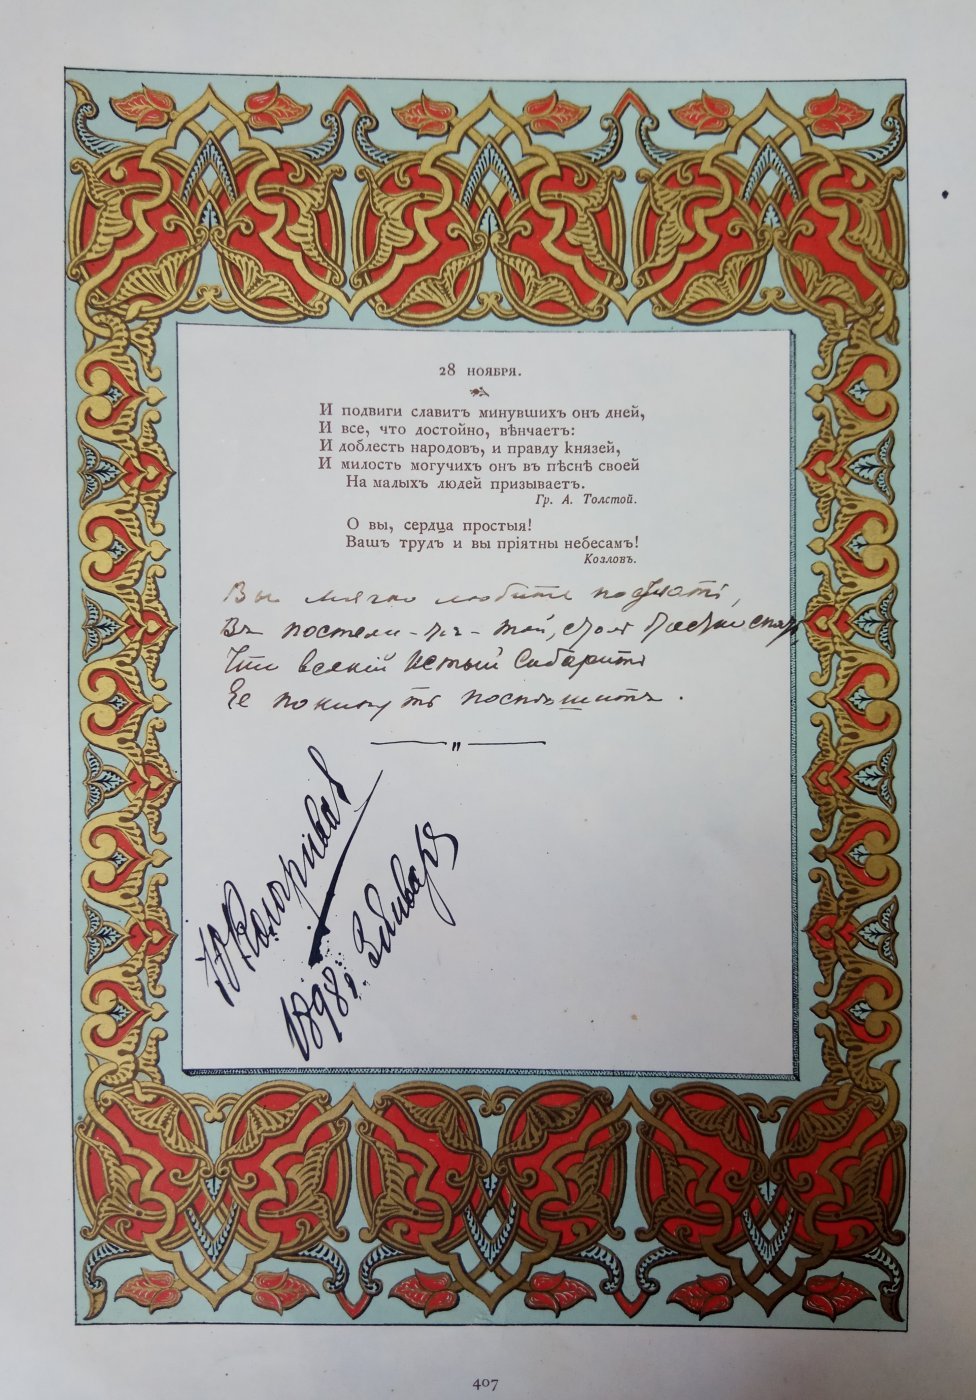 28 НОЯБРЯ.
И подвиги славитъ минувшихъ онъ дней,
И все, что достойно, вѣнчаетъ:
И доблесть народовъ, и правду князей,
И милость могучихъ онъ въ пѣснѣ своей
На малыхъ людей призываетъ.
Гр. А. Толстой.
О вы, сердца простыя!
Вашъ трудъ и вы пріятны небесамъ!
Козловъ.
Вы мягко любите
Въ постели
Что всякій истый Сибаритъ
Ее покинуть поспѣшитъ.
1898 г. Января
407